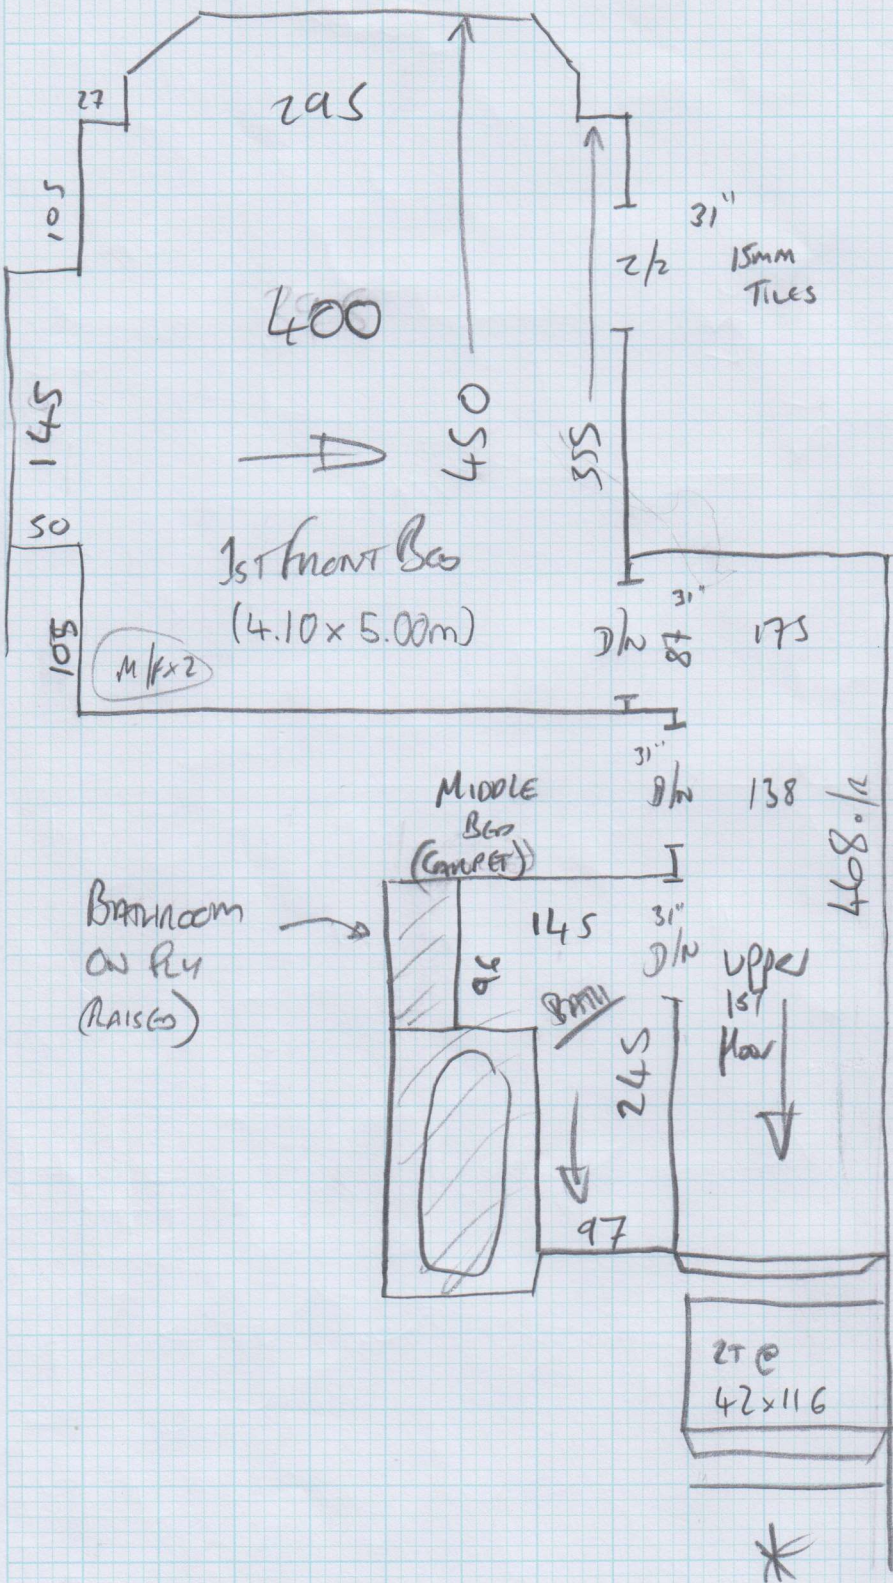 27
295
105
31"
2/2
15mm
TILES
400
145
450
355
50
1ST FRONT BED
(4.10 x 5.00m)
105
M/F x 2
31"
D/N
87
175
31"
D/N
138
468
MIDDLE
BED
(CARPET)
BATHROOM
ON PLY
(RAISED)
145
96
31"
D/N
BATH
245
upper
1ST
floor
97
2T @
42 x 116
*